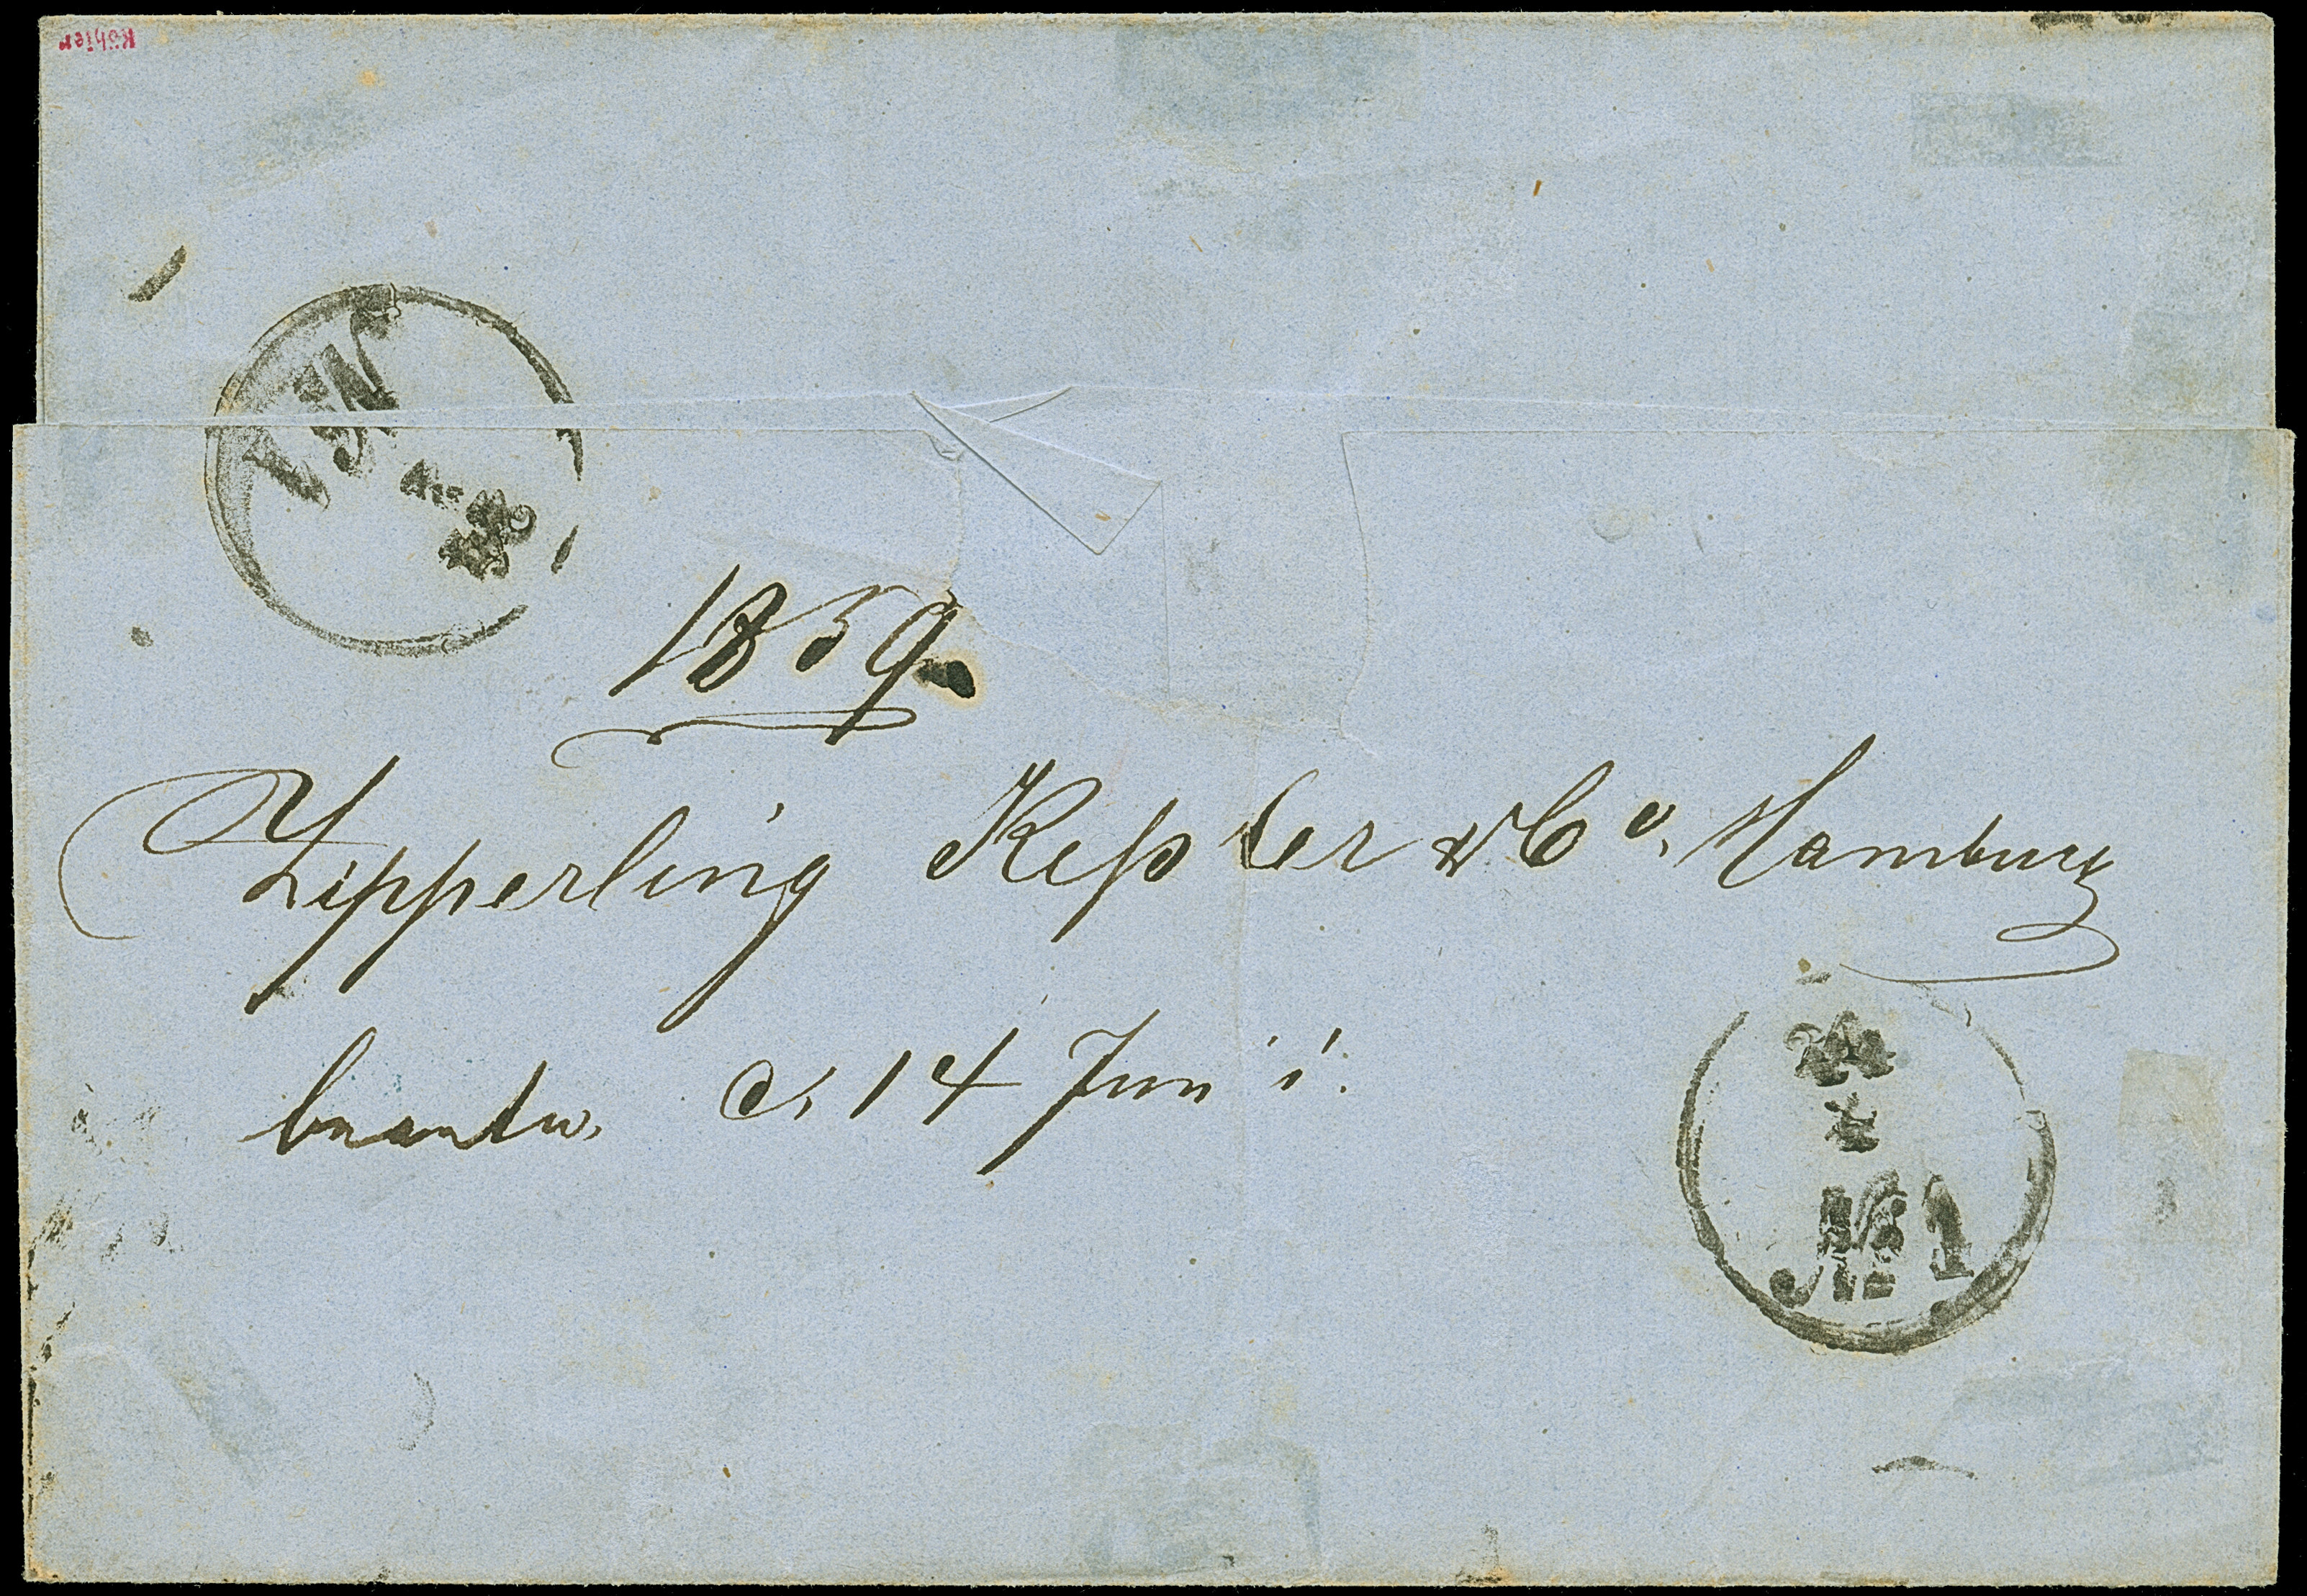 Köhler
1859.
Zipperling Keßler & Co. Hamburg
beantw. d. 14 Juni
№1
№1